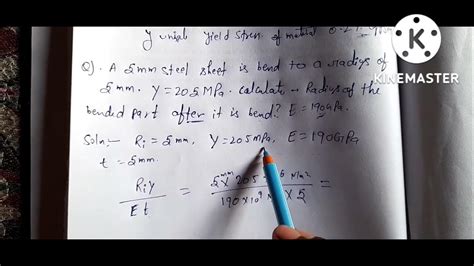 yield stress of material
KINEMASTER
Q). A 5mm steel sheet is bend to a radius of
5mm. Y = 205 MPa. calculate Radius of the
bended part after it is bend? E = 190GPa.
Soln:- Ri = 5mm, Y = 205 MPa, E = 190GPa
t = 5mm.
RiY / Et = 5mm × 205 N/m² / 190×10⁹ × 5 =